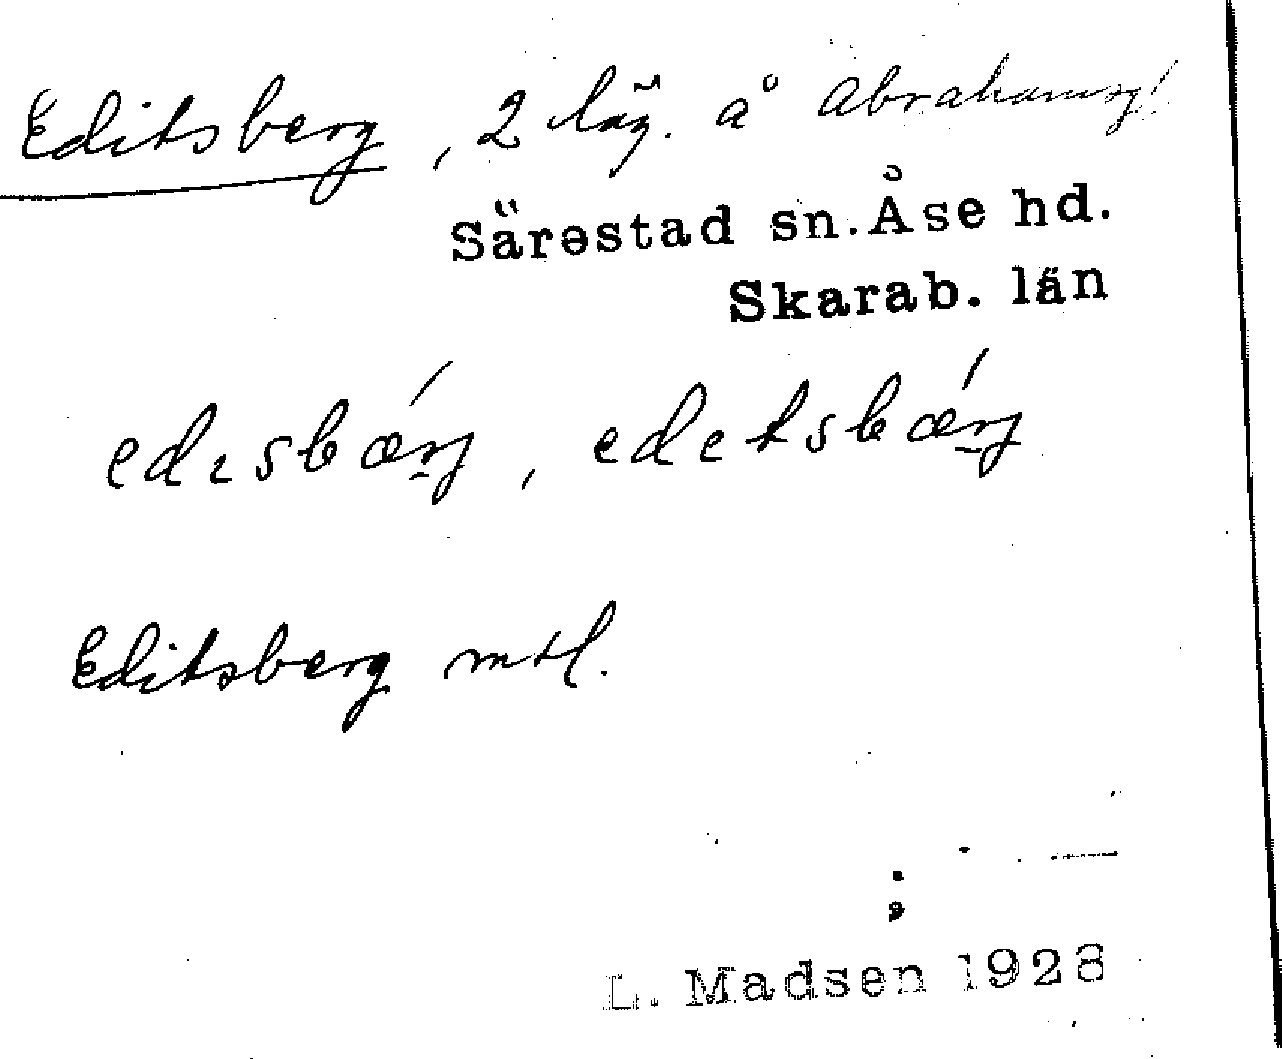 Editsberg, 2 läg. å Abrahamsg.
Särestad sn. Åse hd.
Skarab. län
edɩsbǽrg, edetsbǽrg
Editsberg mtl.
L. Madsen 1928